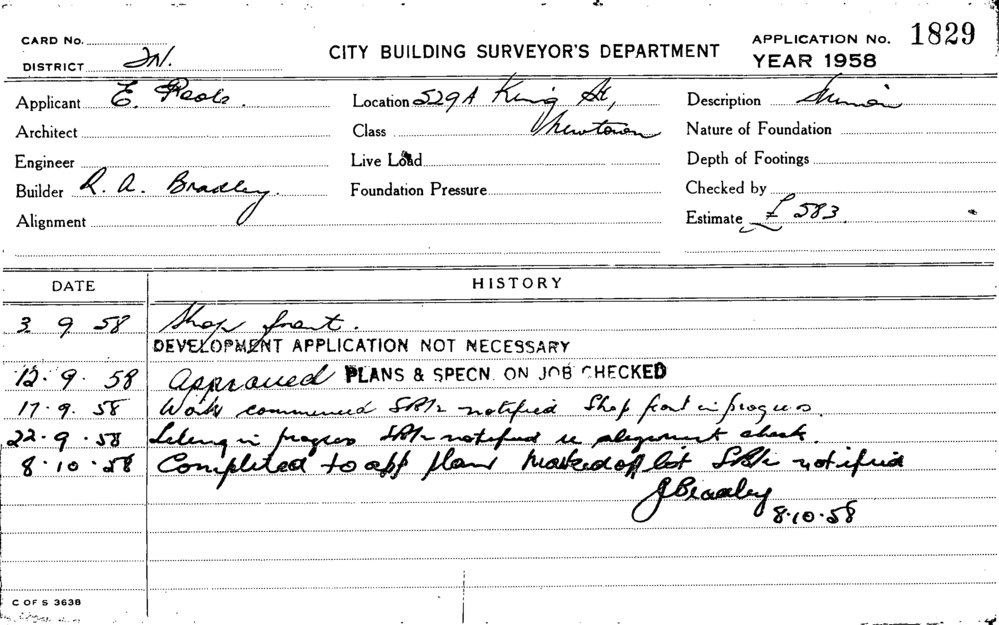 CARD No.
DISTRICT
CITY BUILDING SURVEYOR'S DEPARTMENT
APPLICATION No. 1829
YEAR 1958
Applicant E. Location 529A King St, Description
Architect Class Newtown Nature of Foundation
Engineer Live Load Depth of Footings
Builder R. A. Bradley. Foundation Pressure Checked by
Alignment Estimate £ 583.
DATE HISTORY
3 9 58 Shop front.
DEVELOPMENT APPLICATION NOT NECESSARY
12.9.58 Approved PLANS & SPECN. ON JOB CHECKED
17.9.58 Work commenced notified Shop front in progress.
22.9.58 in progress notified re alignment check.
8.10.58 Completed to app plan notified
J Bradley
8.10.58
C OF S 3638